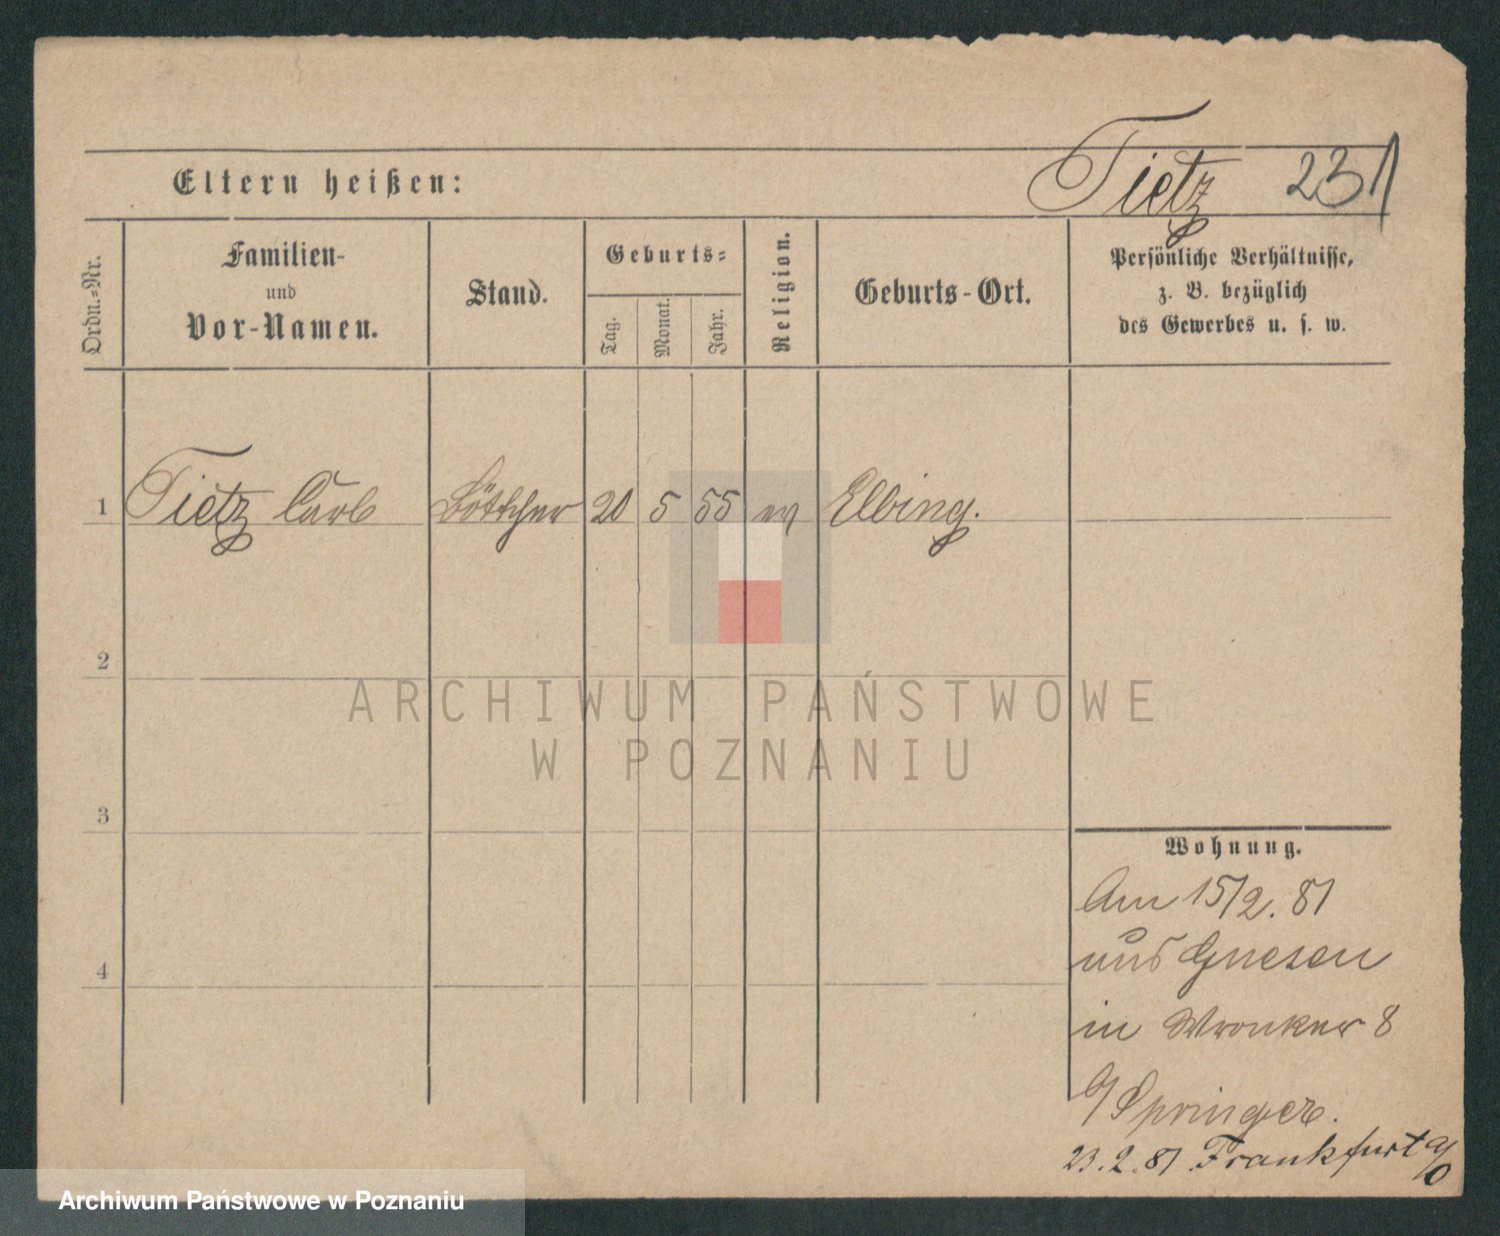 Tietz 231
Eltern heißen:
Ordn.=Nr.
Familien-
und
Vor-Namen.
Stand.
Geburts=
Tag.
Monat.
Jahr.
Religion.
Geburts-Ort.
Persönliche Verhältnisse,
z. B. bezüglich
des Gewerbes u. s. w.
1 Tietz Carl Böttcher 20 5 55 ev Elbing.
2
3
4
Wohnung.
Am 15/2. 81
aus Gnesen
in Wronker 8
b/ Springer.
23. 2. 81. Frankfurt a/O
ARCHIWUM PAŃSTWOWE
W POZNANIU
Archiwum Państwowe w Poznaniu